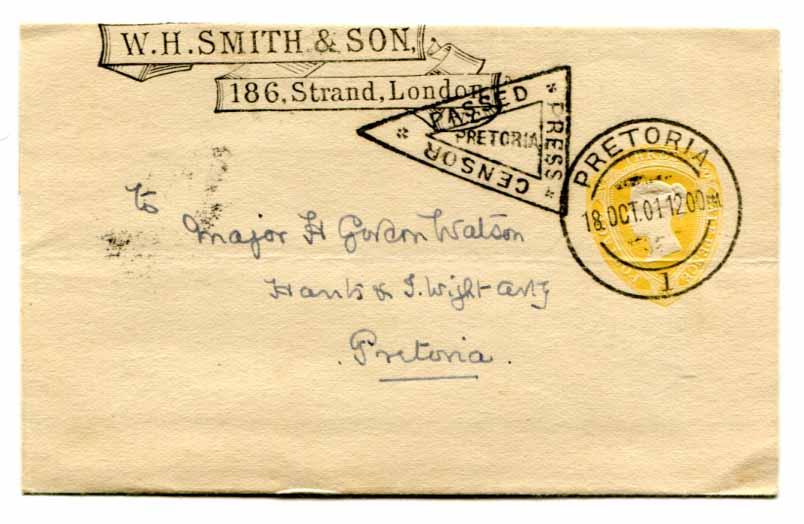 W.H.SMITH & SON,
186, Strand, London
PASSED
PRESS
CENSOR
PRETORIA
PRETORIA
18 OCT. 01 12 00
1
THREE
To
Major H Gordon Watson
Hants & I. Wight Arty
Pretoria.